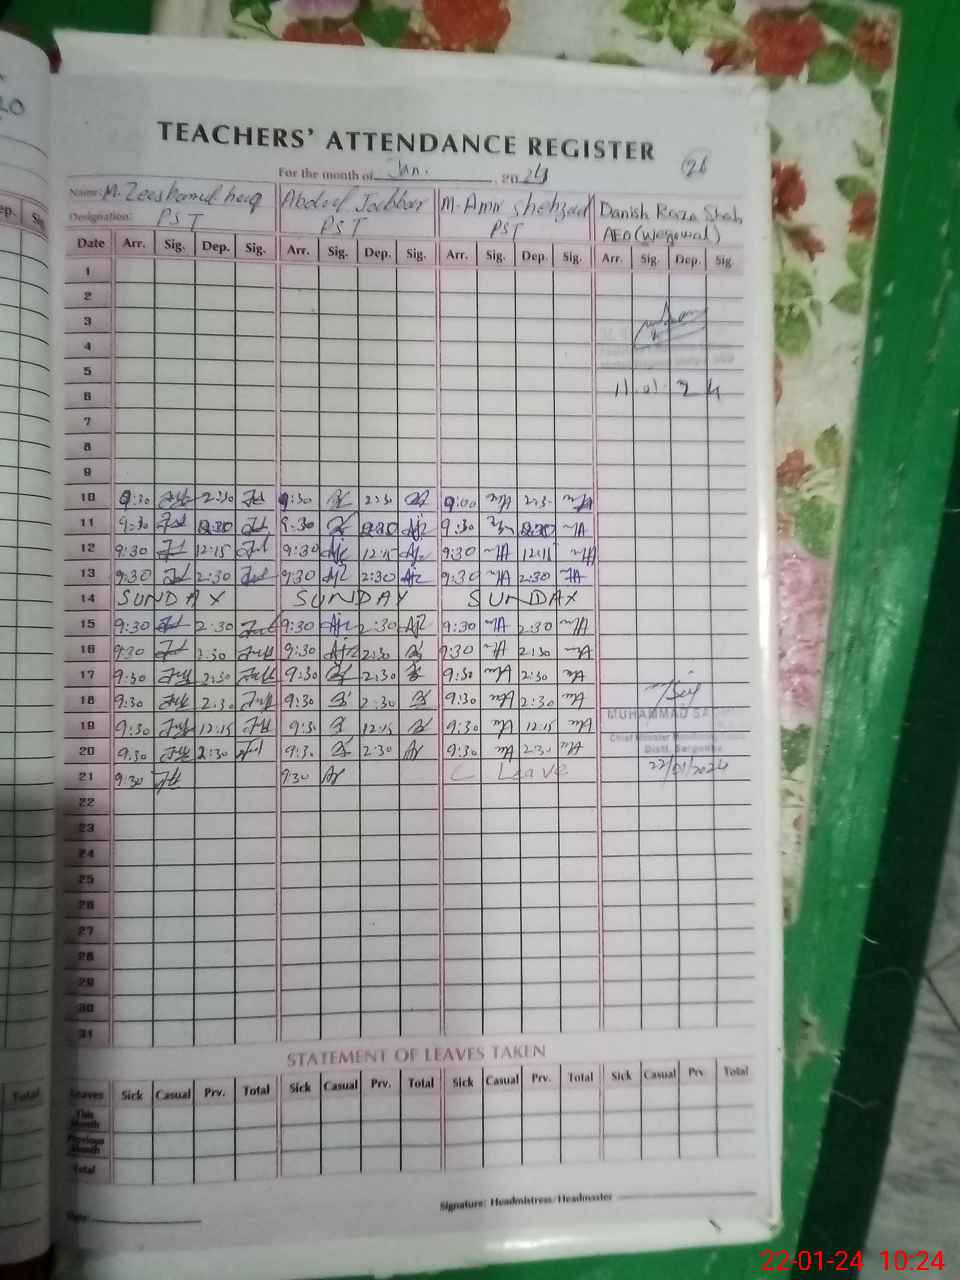 TEACHERS' ATTENDANCE REGISTER
26
For the month of Jan. , 2024
Name: M. Zeeshan ul haq Abdul Jabbar M. Amir Shehzad Danish Raza Shah
Designation: PST PST PST AEO (Wegowal)
Date Arr. Sig. Dep. Sig. Arr. Sig. Dep. Sig. Arr. Sig. Dep. Sig. Arr. Sig. Dep. Sig.
1
2
3
4
5
6 11.01.24
7
8
9
10 9:30 2:30 9:30 2:30 9:00 2:3.
11 9:30 2:30 9:30 2:30 9:30 2:30
12 9:30 12:15 9:30 12:15 9:30 12:15
13 9:30 2:30 9:30 2:30 9:30 2:30
14 SUNDAY SUNDAY SUNDAY
15 9:30 2:30 9:30 2:30 9:30 2:30
16 9:30 2:30 9:30 2:30 9:30 2:30
17 9:30 2:30 9:30 2:30 9:30 2:30
18 9:30 2:30 9:30 2:30 9:30 2:30
MUHAMMAD
19 9:30 12:15 9:3. 12:15 9:30 12:15
Chief Minister Monitoring
20 9:30 2:30 9:3. 2:30 9:30 2:30
Distt. Sargodha
21 9:30 9:30 C Leave 22/01/2024
22
23
24
25
26
27
28
29
30
31
STATEMENT OF LEAVES TAKEN
Leaves Sick Casual Prv. Total Sick Casual Prv. Total Sick Casual Prv. Total Sick Casual Prv. Total
This Month
Previous Month
Total
Signature: Headmistress/Headmaster
Date:
Total
22-01-24 10:24